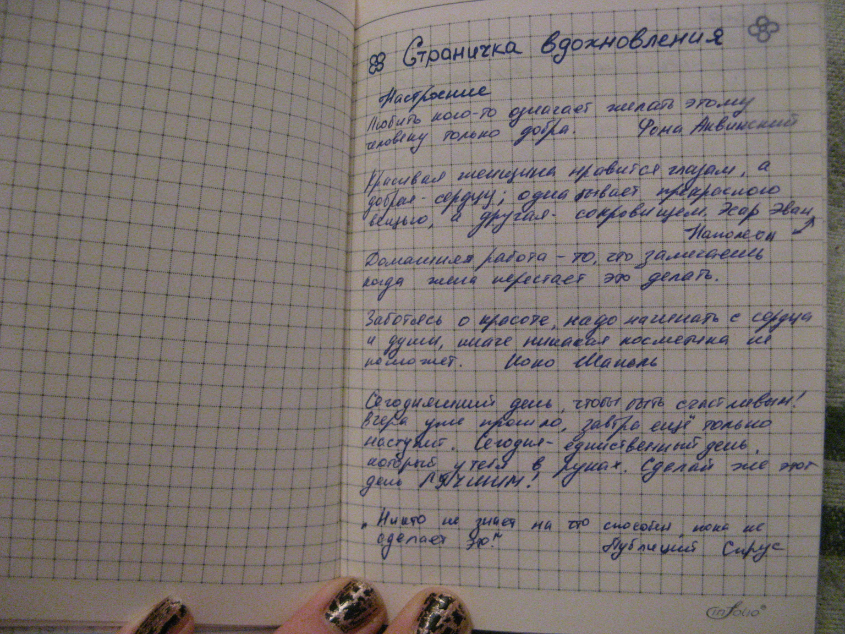 Страничка вдохновления
Настроение
Любить кого-то означает желать этому
человеку только добра. Фома Аквинский
Красивая женщина нравится глазам, а
добрая - сердцу; одна бывает прекрасного
вещью, а другая - сокровищем.
Наполеон
Домашняя работа - то, что замечаешь
когда жена перестает это делать. Эсар Эван
Заботясь о красоте, надо начинать с сердца
и души, иначе никакая косметика не
поможет. Коко Шанель
Сегодняшний день, чтобы быть счастливым!
Вчера уже прошло, завтра ещё только
наступит. Сегодня - единственный день,
который у тебя в руках. Сделай же этот
день ЛУЧШИМ!
„Никто не знает на что способен, пока не
сделает это" Публиций Сирус
inFolio